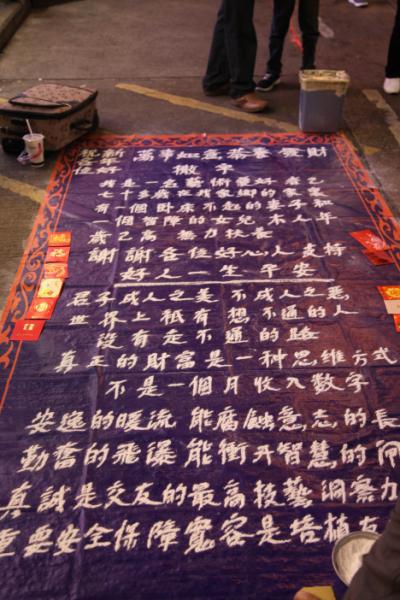 祝 新 萬事如意 恭喜發財
位好 撒字
我是一名藝術愛好者已
七十多歲在我家鄉的家里
有一個卧床不起的妻子和
一個智障的女兒 本人年
歲已高 無力扶養
謝謝各位好心人 支持
好人一生平安
君子成人之美 不成人之惡
世界上祇有想不通的人
沒有走不通的路
真正的財富是一种思维方式
不是一個月收入數字
安逸的暖流 能腐蝕意志的長
勤奮的飛瀑 能衝开智慧的闸
真誠是交友的最高技藝 洞察力
重要安全保障 寬容是培植友